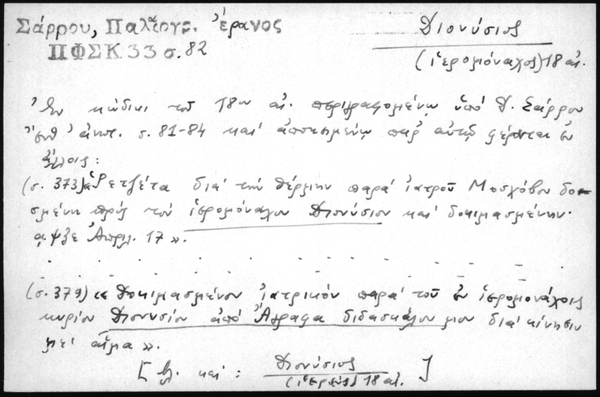 Σάρρου, Παλαιογρ. Έρανος
ΠΦΣΚ 33 σ. 82
Διονύσιος
(ἱερομόναχος) 18 αἰ.
Ἐν κώδικι τοῦ 18ου αἰ. περιγραφομένῳ ὑπό Δ. Σάρρου
ἔνθ' ἀνωτ. σ. 81-84 καί ἀποκειμένῳ παρ' αὐτῷ φέρονται ἐν
ἄλλοις:
(σ. 373) «Ρετζέτα διά τήν θέρμην παρά ἰατροῦ Μοσχόβου δο-
σμένη πρός τόν ἱερομόναχον Διονύσιον καί δοκιμασμένην.
αψξε Ἀπριλ. 17».
. . . . . . . . . . . . . . .
(σ. 379) «Δοκιμασμένον ἰατρικόν παρά τοῦ ἐν ἱερομονάχοις
κυρίου Διονυσίου ἀπό Ἄγραφα διδασκάλου μου διά κίνησιν
μέ αἷμα».
[βλ. καί: Διονύσιος
(ἱερεύς) 18 αἰ. ]